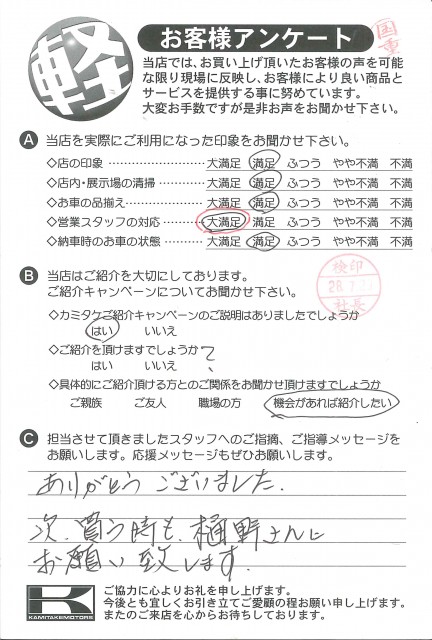 軽
お客様アンケート
国重
当店では、お買い上げ頂いたお客様の声を可能
な限り現場に反映し、お客様により良い商品と
サービスを提供する事に努めています。
大変お手数ですが是非お声をお聞かせ下さい。
A 当店を実際にご利用になった印象をお聞かせ下さい。
◇店の印象 ………………… 大満足 満足 ふつう やや不満 不満
◇店内・展示場の清掃 ………… 大満足 満足 ふつう やや不満 不満
◇お車の品揃え ……………… 大満足 満足 ふつう やや不満 不満
◇営業スタッフの対応 ………… 大満足 満足 ふつう やや不満 不満
◇納車時のお車の状態 ………… 大満足 満足 ふつう やや不満 不満
B 当店はご紹介を大切にしております。
ご紹介キャンペーンについてお聞かせ下さい。
検印
社長
◇カミタケご紹介キャンペーンのご説明はありましたでしょうか
はい いいえ
◇ご紹介を頂けますでしょうか ?
はい いいえ
◇具体的にご紹介頂ける方とのご関係をお聞かせ頂けますでしょうか
ご親族 ご友人 職場の方 機会があれば紹介したい
C 担当させて頂きましたスタッフへのご指摘、ご指導メッセージを
お願いします。応援メッセージもぜひお願いします。
ありがとうございました.
次、買う時も、樋野さんに
お願い致します.
K
KAMITAKEMOTORS
ご協力に心よりお礼を申し上げます。
今後とも宜しくお引き立てご愛顧の程お願い申し上げます。
またのご来店を心からお待ちしております。